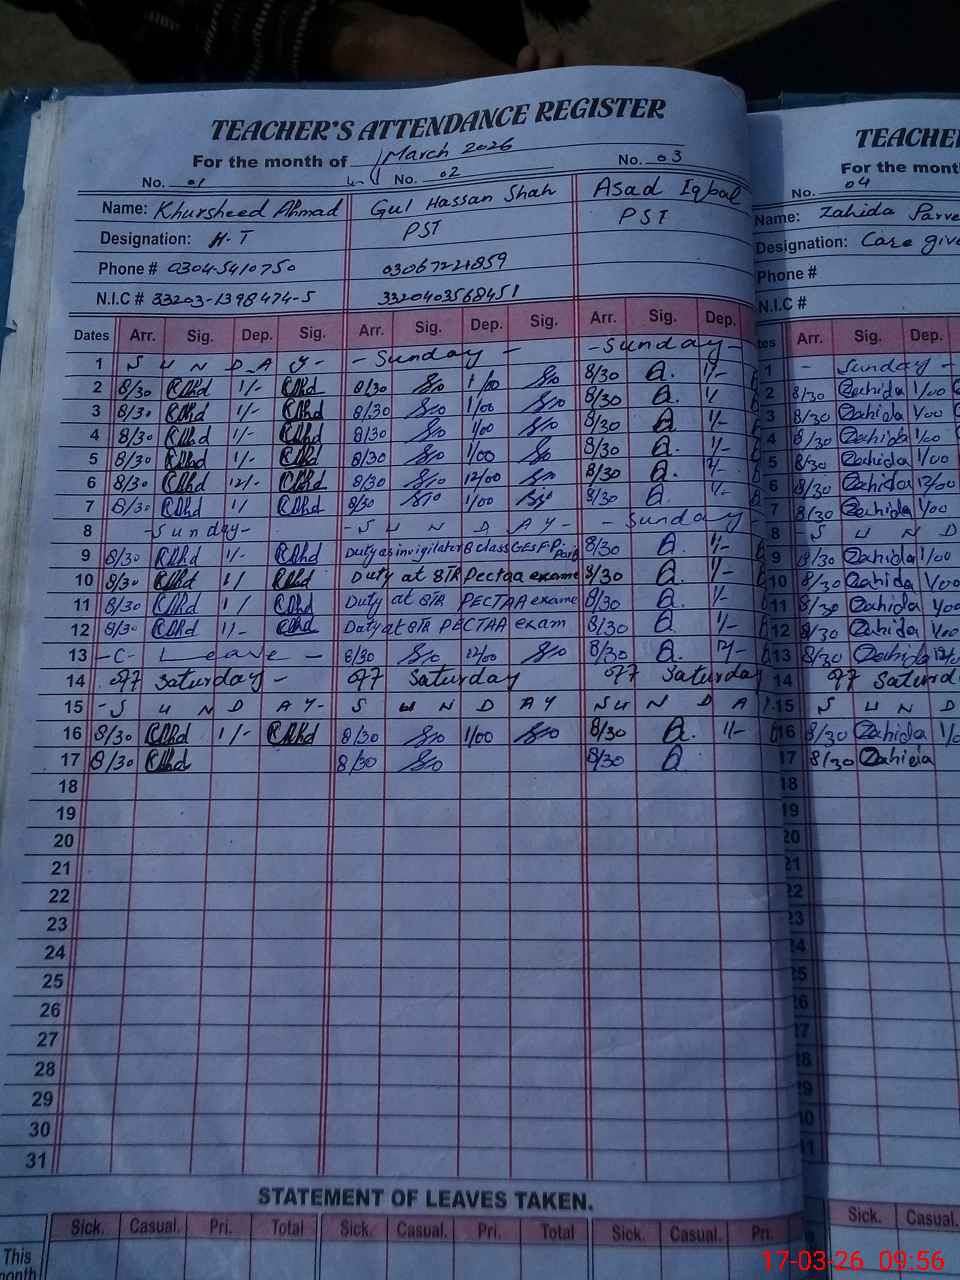 TEACHER'S ATTENDANCE REGISTER
For the month of March 2026
No. 01 No. 02 No. 03
Name: Khursheed Ahmad Gul Hassan Shah Asad Iqbal
Designation: H.T PST PST
Phone # 0304-5410750 03067221859
N.I.C # 33203-1398474-5 3320403568451
Dates Arr. Sig. Dep. Sig. Arr. Sig. Dep. Sig. Arr. Sig. Dep.
1 S U N D A Y - - Sunday - - Sunday -
2 8/30 1/- 8/30 1/00 8/30 1/-
3 8/30 1/- 8/30 1/00 8/30 1/
4 8/30 1/- 8/30 1/00 8/30 1/-
5 8/30 1/- 8/30 1/00 8/30 1/-
6 8/30 12/- 8/30 12/00 8/30 12/-
7 8/30 1/ 8/30 1/00 8/30 1/-
8 - Sunday - - S U N D A Y - - Sunday
9 8/30 1/- Duty as invigilator 8 class 8/30 1/-
10 8/30 1/ Duty at 8TR Pectaa exame 8/30 1/-
11 8/30 1/ Duty at 8TR PECTAA exame 8/30 1/-
12 8/30 1/- Duty at 8TR PECTAA exam 8/30 1/-
13 - C - Leave - 8/30 12/00 8/30 12/-
14 Saturday - Saturday Saturday
15 - S U N D A Y - S U N D A Y S U N D A Y
16 8/30 1/- 8/30 1/00 8/30 1/-
17 8/30 8/30 8/30
18
19
20
21
22
23
24
25
26
27
28
29
30
31
STATEMENT OF LEAVES TAKEN.
Sick. Casual. Pri. Total Sick. Casual. Pri. Total Sick. Casual. Pri.
This
month
TEACHE
For the mont
No. 04
Name: Zahida Parve
Designation: Care give
Phone #
N.I.C #
tes Arr. Sig. Dep.
1 - Sunday -
2 8/30 Zahida 1/00
3 8/30 Zahida 1/00
4 8/30 Zahida 1/00
5 8/30 Zahida 1/00
6 8/30 Zahida 12/00
7 8/30 Zahida 1/00
8 - S U N D
9 8/30 Zahida 1/00
10 8/30 Zahida 1/00
11 8/30 Zahida 1/00
12 8/30 Zahida 1/00
13 8/30 Zahida 12/0
14 Saturd
15 - S U N D
16 8/30 Zahida 1/0
17 8/30 Zahida
18
19
20
21
22
23
24
25
26
27
28
29
30
31
Sick. Casual.
17-03-26 09:56